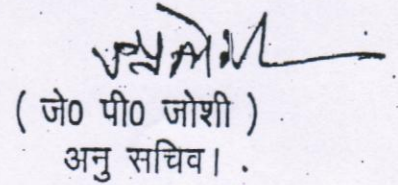 ( जे0 पी0 जोशी )
अनु सचिव।